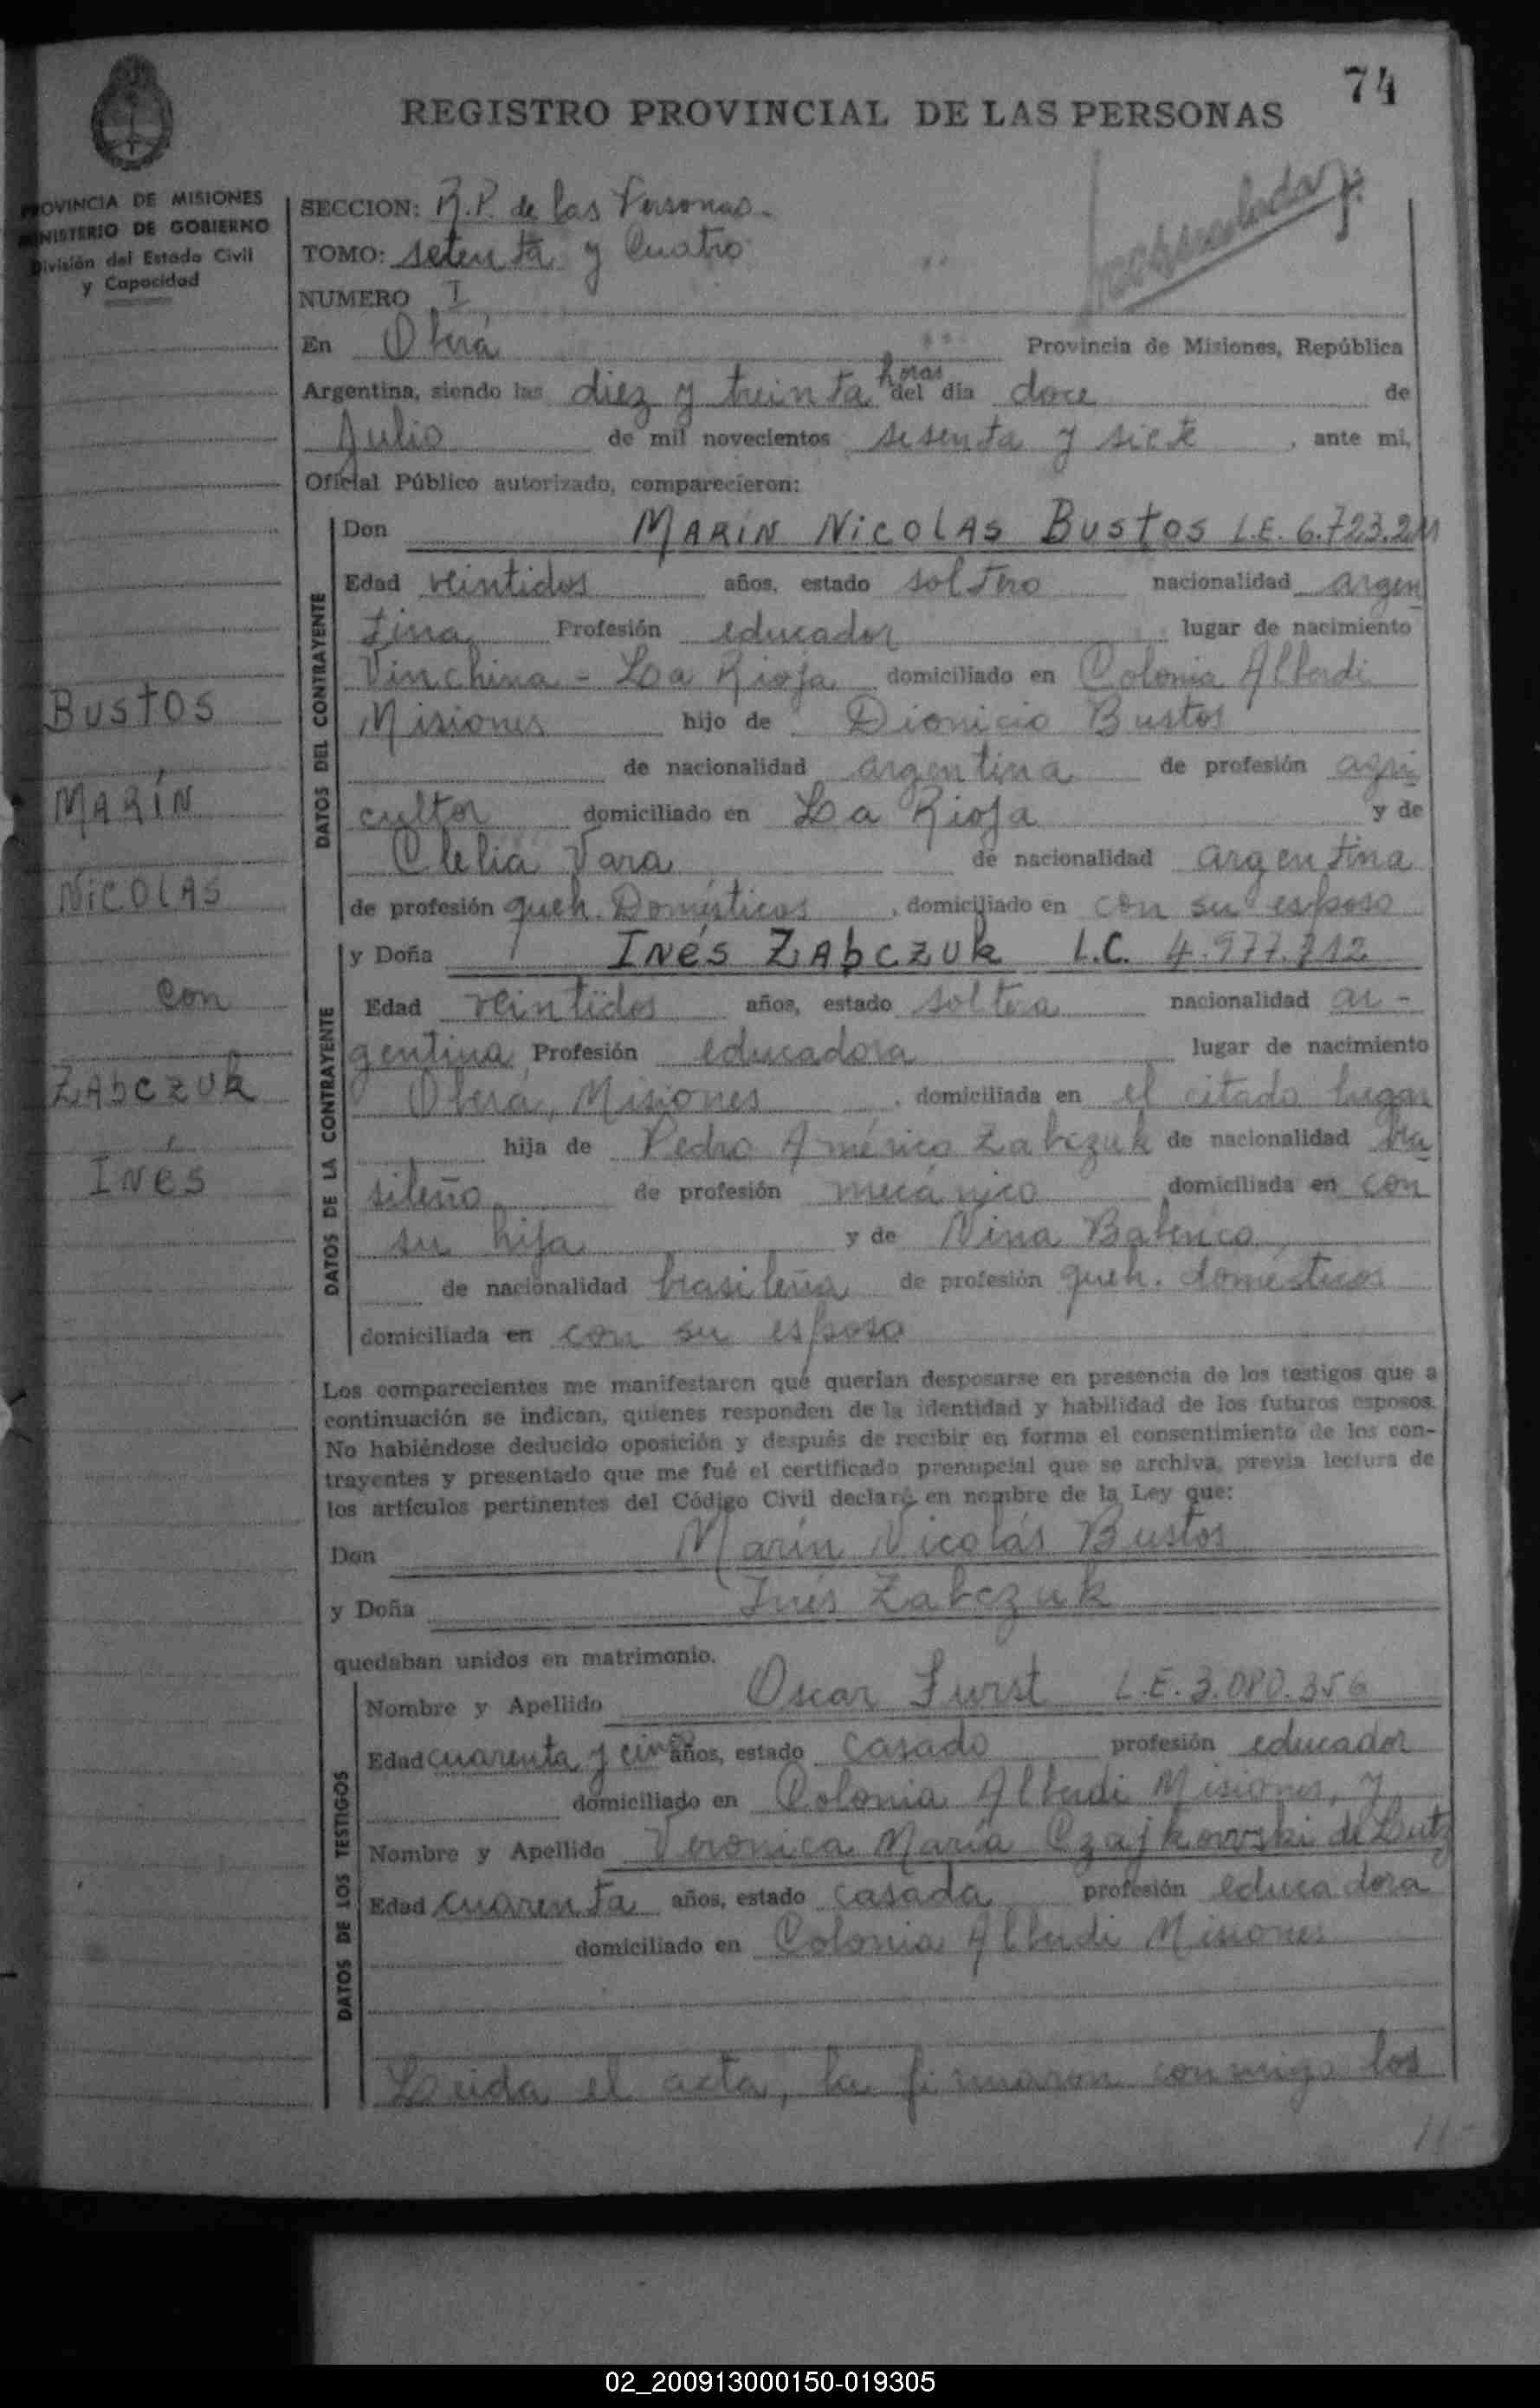 74
REGISTRO PROVINCIAL DE LAS PERSONAS
PROVINCIA DE MISIONES
MINISTERIO DE GOBIERNO
División del Estado Civil
y Capacidad
SECCION: R.P. de las Personas.
TOMO: setenta y Cuatro
NUMERO I
En Oberá Provincia de Misiones, República
horas
Argentina, siendo las diez y treinta del día doce de
Julio de mil novecientos sesenta y siete, ante mi,
Oficial Público autorizado, comparecieron:
BUSTOS
MARÍN
NICOLAS
con
ZAbCZUk
INéS
DATOS DEL CONTRAYENTE
Don MARIN NICOLAS BUSTOS L.E. 6.723.211
Edad veintidos años, estado soltero nacionalidad argen
tina Profesión educador lugar de nacimiento
Vinchina - La Rioja domiciliado en Colonia Alberdi
Misiones hijo de Dionicio Bustos
de nacionalidad argentina de profesión agri
cultor domiciliado en La Rioja y de
Clelia Vara de nacionalidad argentina
de profesión queh. Domésticos, domiciliado en con su esposo
DATOS DE LA CONTRAYENTE
y Doña INéS ZAbCZUk L.C. 4.977.712
Edad veintidos años, estado soltera nacionalidad ar-
gentina Profesión educadora lugar de nacimiento
Oberá, Misiones, domiciliada en el citado lugar
hija de Pedro Américo Zabczuk de nacionalidad bra
sileño de profesión mecánico domiciliada en con
su hija y de Nina
de nacionalidad brasileña de profesión queh. domésticos
domiciliada en con su esposo
Los comparecientes me manifestaron que querían desposarse en presencia de los testigos que a
continuación se indican, quienes responden de la identidad y habilidad de los futuros esposos.
No habiéndose deducido oposición y después de recibir en forma el consentimiento de los con-
trayentes y presentado que me fué el certificado prenupcial que se archiva, previa lectura de
los artículos pertinentes del Código Civil declaré en nombre de la Ley que:
Don Marín Nicolás Bustos
y Doña Inés Zabczuk
quedaban unidos en matrimonio.
DATOS DE LOS TESTIGOS
Nombre y Apellido Oscar Furst L.E. 3.080.356
Edad cuarenta y cinco años, estado casado profesión educador
domiciliado en Colonia Alberdi Misiones, y
Nombre y Apellido Veronica María Czajkowski de Lutz
Edad cuarenta años, estado casada profesión educadora
domiciliado en Colonia Alberdi Misiones
Leida el acta, la firmaron conmigo los
02_200913000150-019305